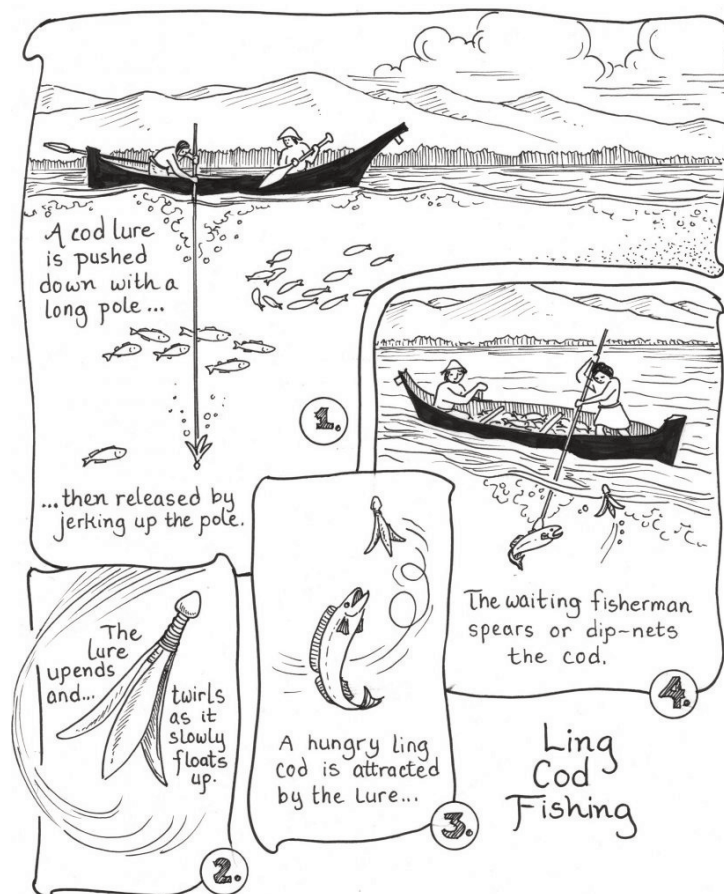 A cod lure
is pushed
down with a
long pole ...
... then released by
jerking up the pole.
1.
The
lure
upends
and...
twirls
as it
slowly
floats
up.
2.
A hungry ling
cod is attracted
by the lure...
3.
The waiting fisherman
spears or dip-nets
the cod.
4.
Ling
Cod
Fishing